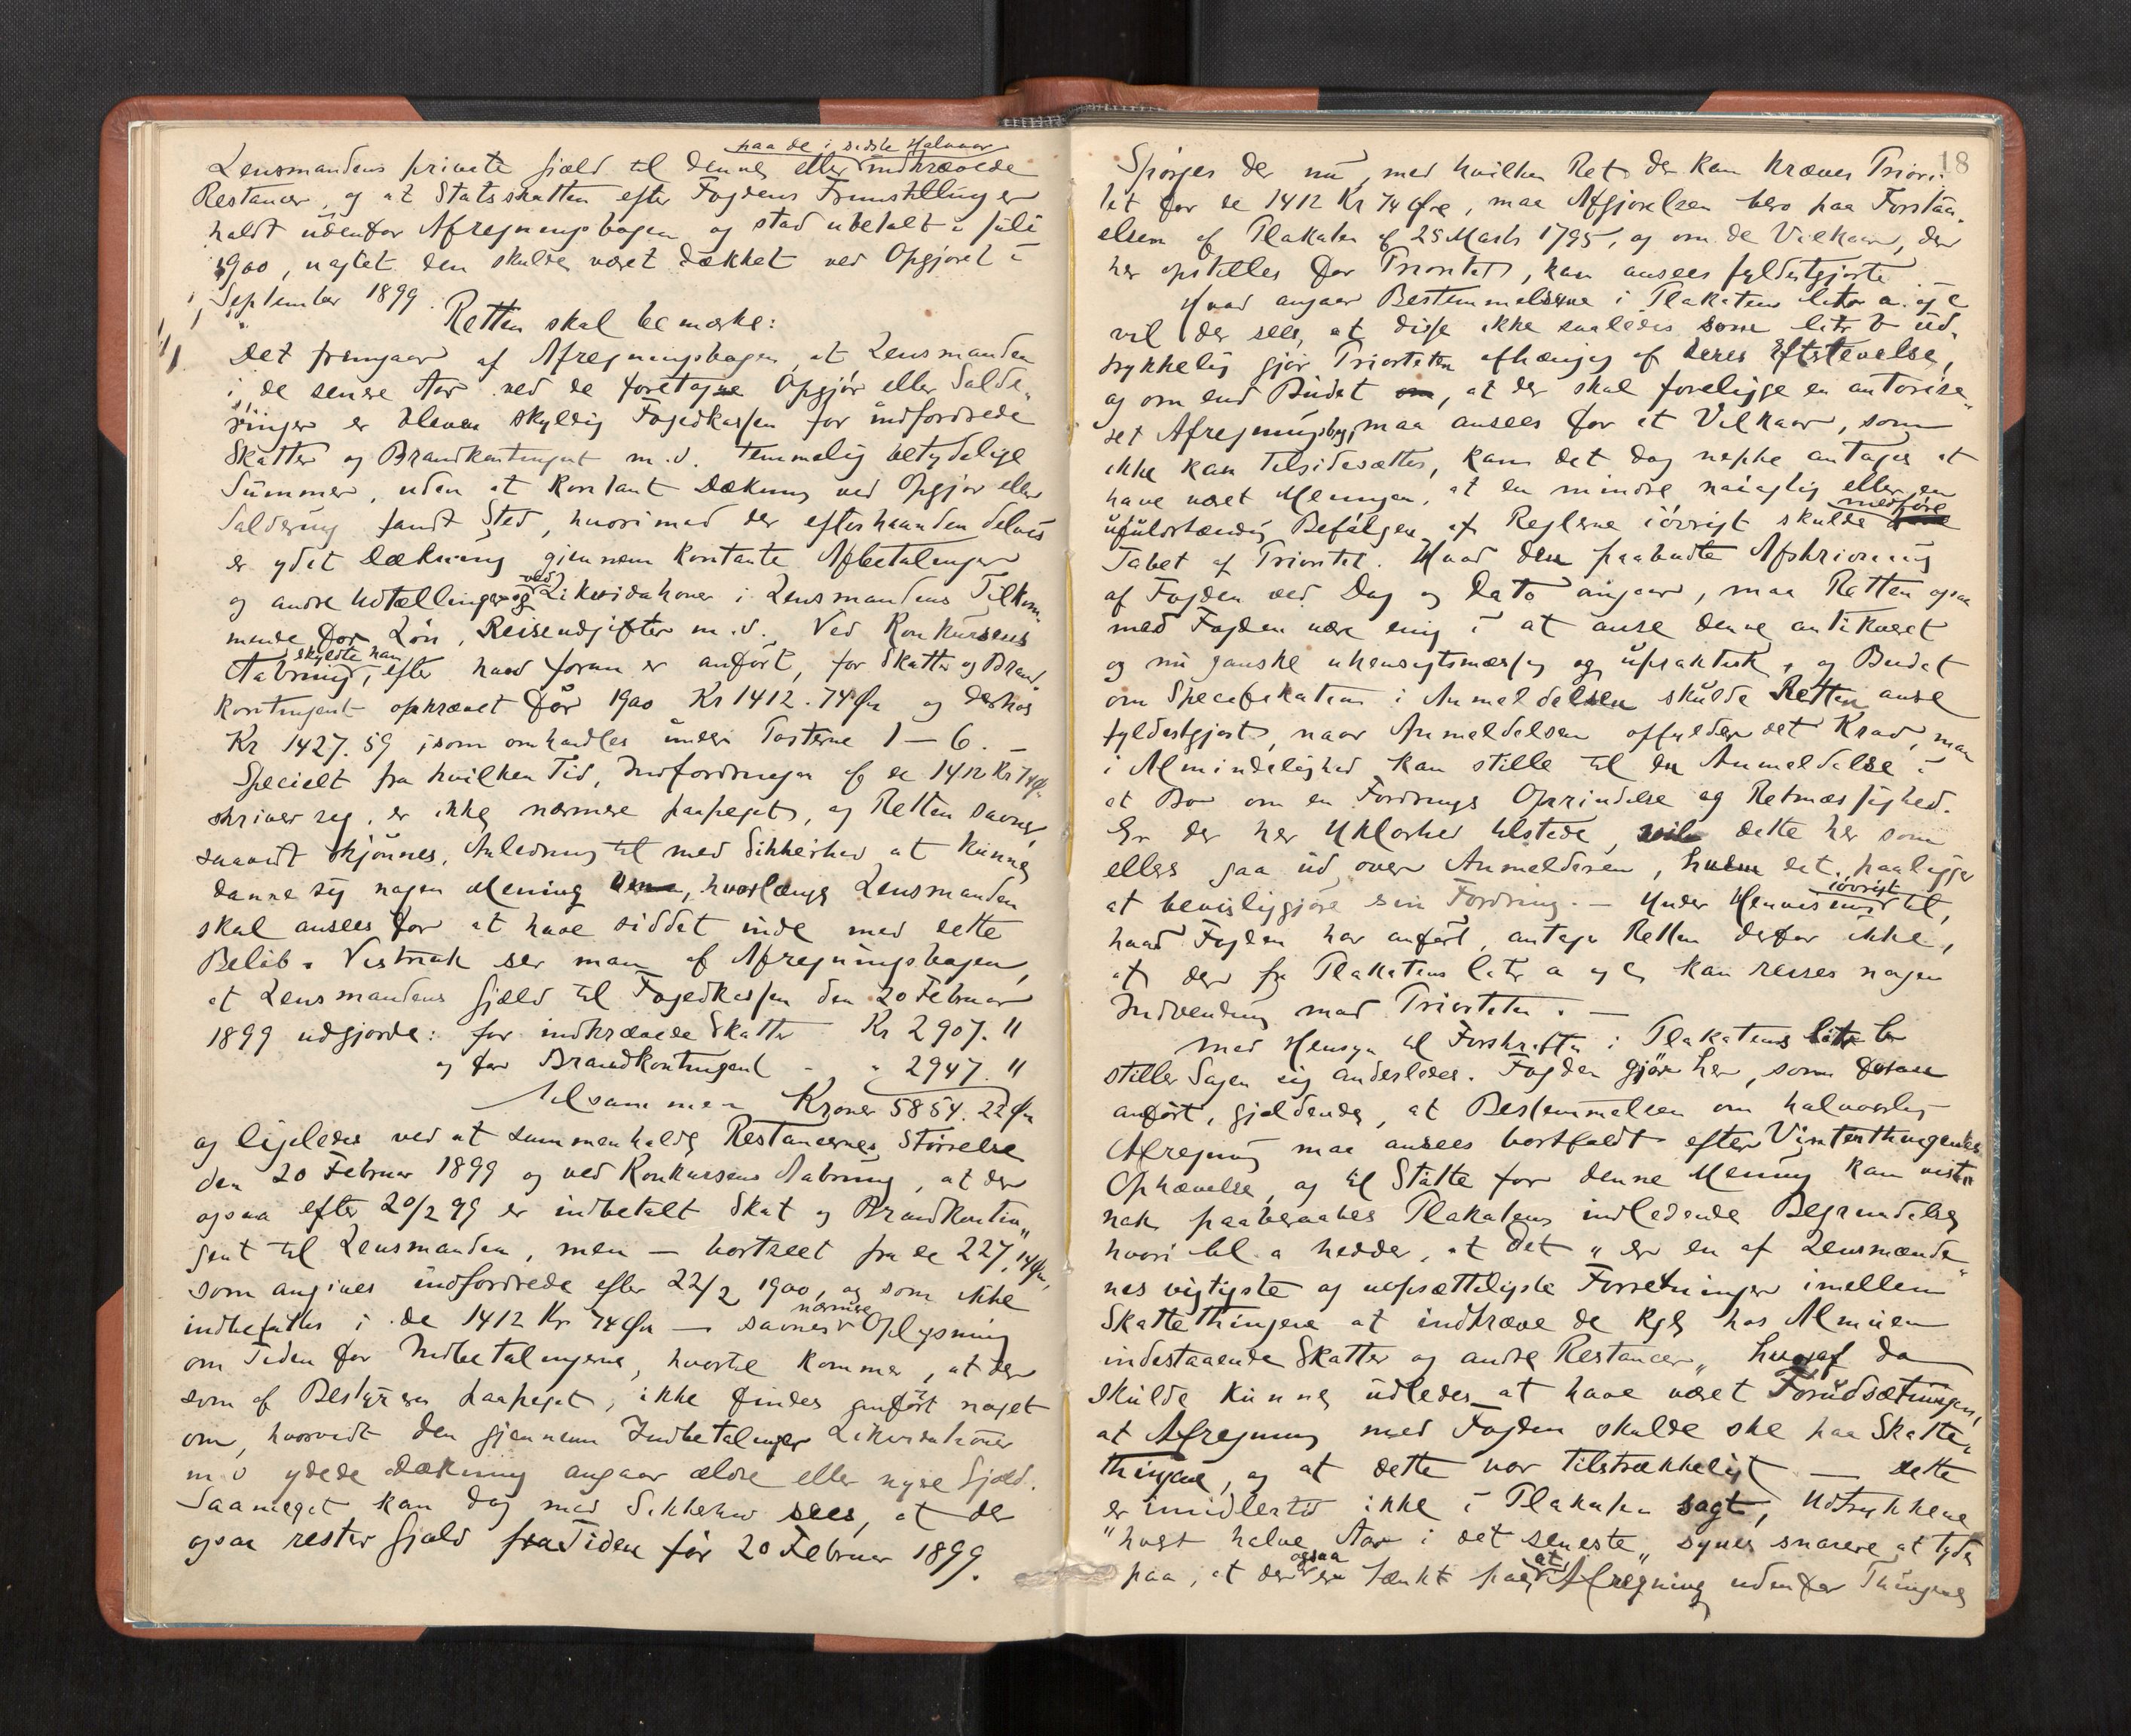 paa de i sidste Halvaar
Lensmandens private Gjæld til denne eller indkrævede
Restancer, og at Statsskatten efter Fogdens Fremstilling er
holdt udenfor Afregningsbogen og stod ubetalt i Juli
1900, uagtet den skulde været dækket ved Opgjøret i
September 1899.
Retten skal bemærke:
Det fremgaar af Afregningsbogen, at Lensmanden
i de senere Aar ved de foretagne Opgjør eller Salde-
ringer er bleven skyldig Fogedkassen for indfordrede
Skatter og Brandkontingent m.v. temmelig betydelige
Summer, uden at kontant Dækning ved Opgjør eller
Saldering fandt Sted, hvorimod der efterhaanden delvis
er ydet Dækning gjennem kontante Afbetalinger
og andre Udtællinger og ved Likvidationer i Lensmandens Tilkom-
mende for Løn, Reiseudgifter m.v. Ved Konkursens
skyldte han
Aabning, efter hvad foran er anført, for Skatter og Brand-
kontingent opkrævet før 1900 Kr 1412.74 Øre og derhos
Kr 1427.59, som omhandles under Posterne 1 — 6. —
Specielt fra hvilken Tid, Indfordringen af de 1412 Kr 74 Ør
skriver sig, er ikke nærmere paapeget, og Retten savner,
saavidt skjønnes, Anledning til med Sikkerhed at kunne
danne sig nogen Mening, hvorlænge Lensmanden
skal ansees for at have siddet inde med dette
Beløb. Vistnok ser man af Afregningsbogen,
at Lensmandens Gjæld til Fogedkassen den 20 Februar
1899 udgjorde: for indkrævede Skatter Kr 2907. "
og for Brandkontingent - " 2947. "
tilsammen Kroner 5854. 22 Øre
og ligeledes ved at sammenholde Restancernes Størrelse
den 20 Februar 1899 og ved Konkursens Aabning, at der
ogsaa efter 20/2 99 er indbetalt Skat og Brandkontin-
gent til Lensmanden, men — bortseet fra de 227,14 Ør,
som angives indfordrede efter 22/2 1900, og som ikke
indbefattes i de 1412 Kr 74 Øre — savnes nærmere Oplysning
om Tiden for Indbetalingerne, hvortil kommer, at der
som af Bestyreren paapeget, ikke findes anført noget
om, hvorvidt den gjennem Indbetalinger Likvidationer
m.v. ydede Dækning angaar ældre eller nyere Gjæld.
Saameget kan dog med Sikkerhed sees, at der
ogsaa rester Gjæld fra Tiden før 20 Februar 1899.
18
Spørges der nu, med hvilken Ret der kan kræves Priori-
tet for de 1412 Kr 74 Øre, maa Afgjørelsen bero paa Forstaa-
elsen af Plakaten af 25 Marts 1795, og om de Vilkaar, der
her opstilles for Prioritet, kan ansees fyldestgjorte.
Hvad angaar Bestemmelserne i Plakatens litr a. og c
vil der sees, at disse ikke saaledes som litr b ud-
trykkelig gjør Prioriteten afhængig af deres Efterlevelse,
og om end Budet, at der skal foreligge en autorise-
ret Afregningsbog, maa ansees for et Vilkaar, som
ikke kan tilsidesættes, kan det dog neppe antages at
have været Meningen, at en mindre nøiagtig eller en
ufuldstændig Befølgen af Reglerne iøvrigt skulde medføre
Tabet af Prioritet. Hvad den paabudte Afskrivning
af Fogden ved Dag og Dato angaar, maa Retten ogsaa
med Fogden være enig i at anse denne antikveret
og nu ganske uhensigtsmæssig og upraktisk, og Budet
om Specifikation i Anmeldelsen skulde Retten anse
fyldestgjort, naar Anmeldelsen opfylder det Krav, man
i Almindelighed kan stille til en Anmeldelse i
et Bo om en Fordrings Oprindelse og Retmæssighed.
Er der her Uklarhed tilstede, vil dette her som
ellers gaa ud over Anmelderen, hvem det paaligger
at bevisliggjøre sin Fordring. — Under Henvisning iøvrigt til,
hvad Fogden har anført, antager Retten derfor ikke,
at der fra Plakatens litr a og c kan reises nogen
Indvending mod Prioriteten. —
Med Hensyn til Forskriften i Plakatens litr b
stiller Sagen sig anderledes. Fogden gjør her, som foran
anført, gjældende, at Bestemmelsen om halvaarlig
Afregning maa ansees bortfaldt efter Vinterthingenes
Ophævelse, og til Støtte for denne Mening kan vist-
nok paaberaabes Plakatens indledende Begrundelse
hvori bl. a hedder, at det "er en af Lensmænde-
nes vigtigste og uopsætteligste Forretninger imellem
Skattethingene at indkræve de Kgl hos Almuen
indestaaende Skatter og andre Restancer", hvoraf da
skulde kunne udledes at have været Forudsætningen,
at Afregning med Fogden skulde ske paa Skatte-
thingene, og at dette var tilstrækkeligt — dette
er imidlertid ikke i Plakaten sagt, Udtrykkene
"hvert halve Aar i det seneste" synes snarere at tyde
paa, at der ogsaa er tænkt paa at Afregning udenfor Thingene